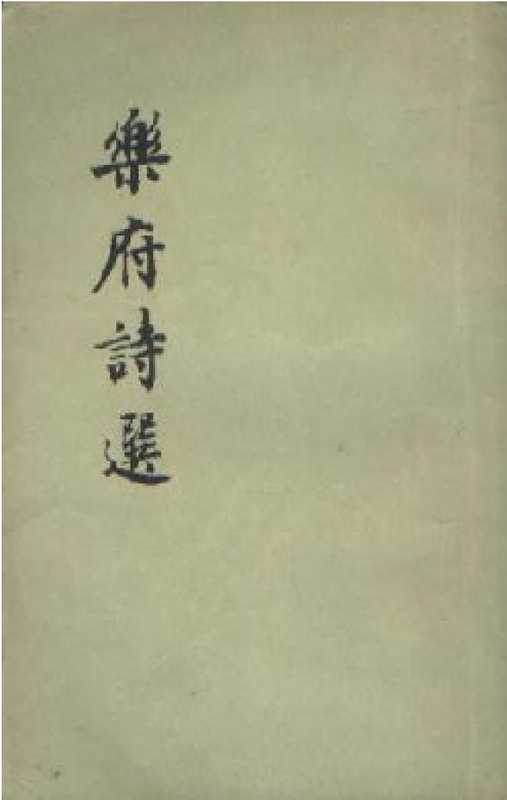 樂府詩選